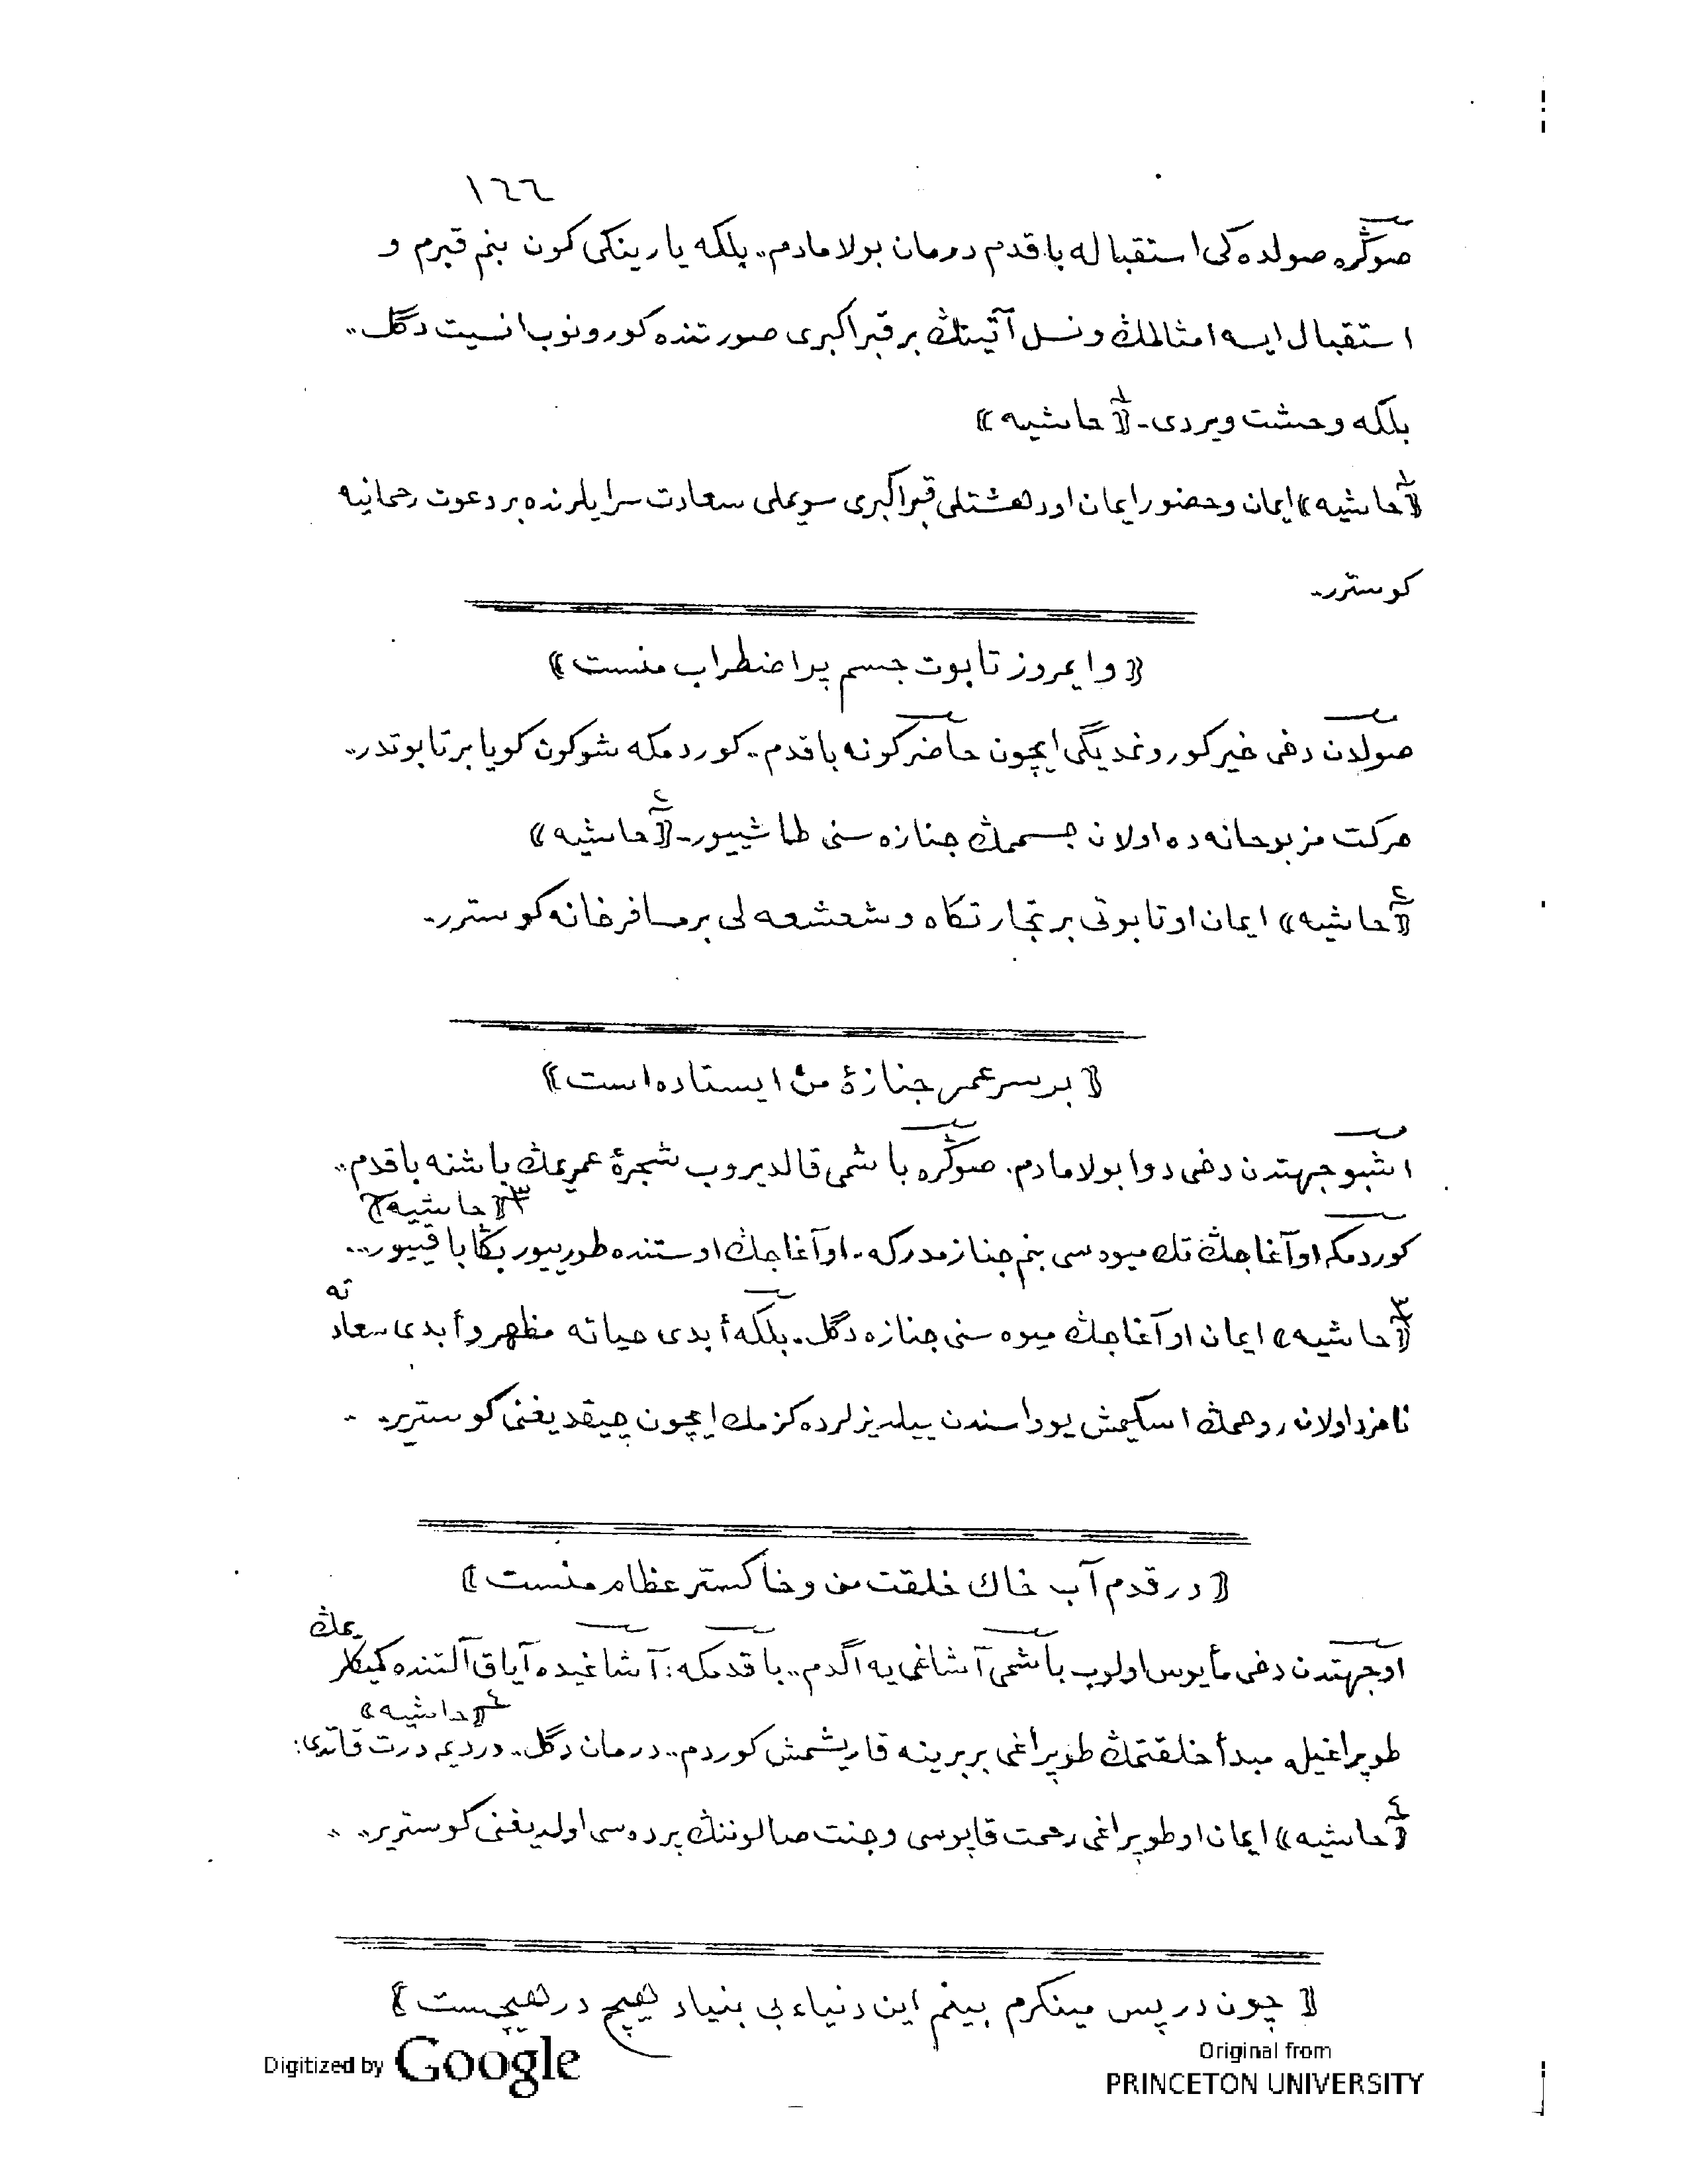 ١٦٦
صوڭره صولده كی استقباله باقدم درمان بولامادم.. بلكه يارينكی كون بنم قبرم و
استقبال ايسه امثالمڭ و نسل آتينڭ بر قبر اكبری صورتنده كورونوب انسيت دگل..
بلكه وحشت ويردی. ﴿١ حاشيه﴾
﴿١ حاشيه﴾ ايمان و حضور ايمان او دهشتلی قبر اكبری سويملی سعادت سرايلرنده بر دعوت رحمانيه
كوسترر.
﴿و ايمروز تابوت جسم پر اضطراب منست﴾
صولدن دخی خير كورونمديگی ايچون حاضر كونه باقدم.. كوردمكه شو كون كويا بر تابوتدر..
حركت مذبوحانه ده اولان جسممڭ جنازه سنی طاشييور. ﴿٢ حاشيه﴾
﴿٢ حاشيه﴾ ايمان او تابوتی بر تجارتكاه و شعشعه لی بر مسافرخانه كوسترر.
﴿بر سر عمر جنازهٔ من ايستاده است﴾
اشبو جهتدن دخی دوا بولامادم. صوڭره باشمی قالديروب شجرهٔ عمريمڭ باشنه باقدم..
كوردمكه او آغاجڭ تك ميوه سی بنم جنازمدركه.. او آغاجڭ اوستنده طورييور بڭا باقييور... ﴿٣ حاشيه﴾
﴿٣ حاشيه﴾ ايمان او آغاجڭ ميوه سنی جنازه دگل.. بلكه أبدی حياته مظهر و أبدی سعادته
نامزد اولان روحمڭ اسكيمش يوواسندن ييلديزلرده كزمك ايچون چيقديغنی كوستيرير.
﴿در قدم آب خاك خلقت من و خاكستر عظام منست﴾
او جهتدن دخی مأيوس اولوب باشمی آشاغی يه اگدم.. باقدمكه: آشاغيده آياق آلتنده كميكلريمڭ
طوپراغيله مبدأ خلقتمڭ طوپراغی بربرينه قاريشمش كوردم.. درمان دگل.. درديمه درت قاتدی: ﴿٤ حاشيه﴾
﴿٤ حاشيه﴾ ايمان او طوپراغی رحمت قاپوسی و جنت صالوننڭ پرده سی اولديغنی كوستيرير..
﴿چون در پس مينكرم بينم اين دنياء بی بنياد هيچ در هيچست﴾
Digitized by Google
Original from
PRINCETON UNIVERSITY